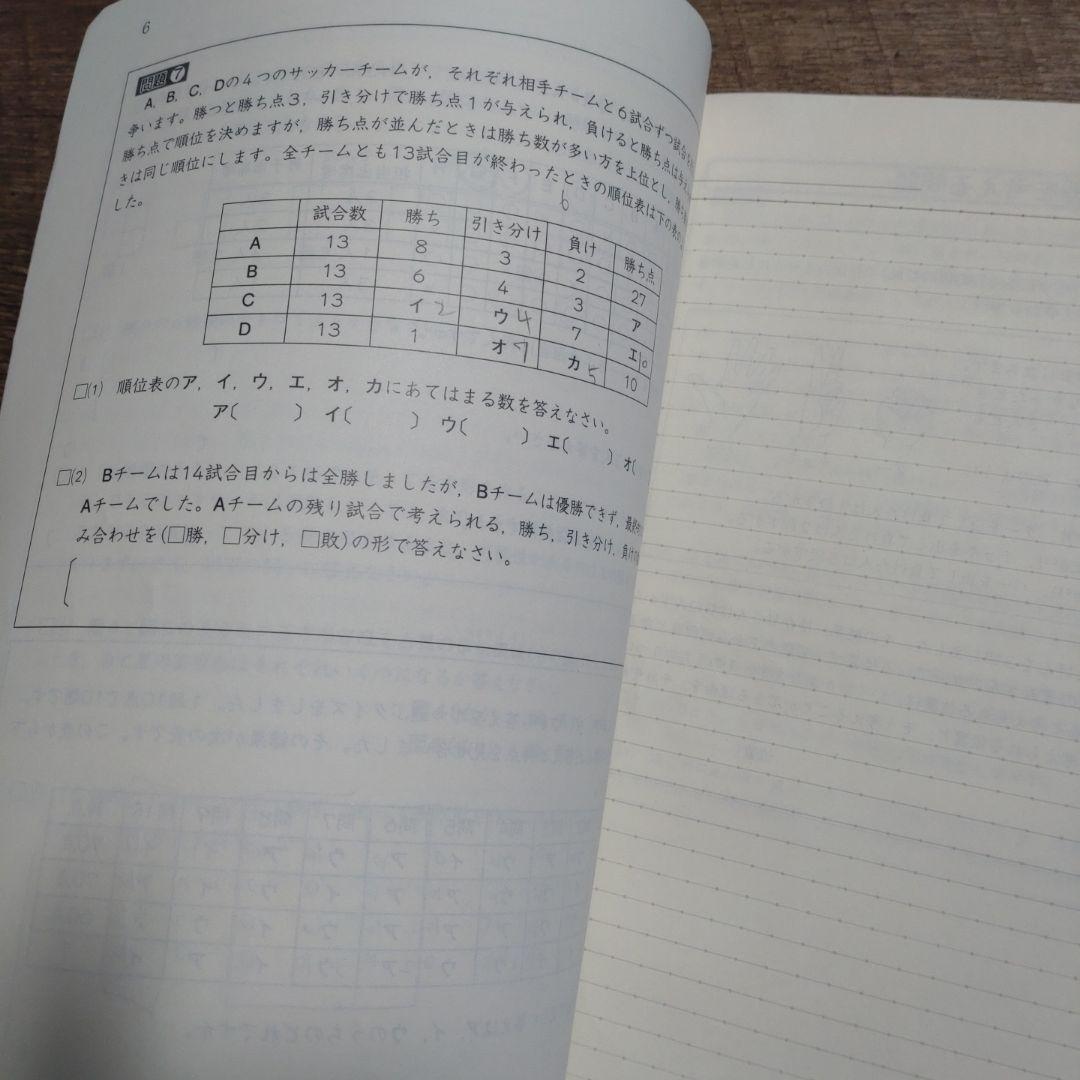 6
問題7
A, B, C, Dの4つのサッカーチームが，それぞれ相手チームと6試合ずつ試合を
争います。勝つと勝ち点3，引き分けで勝ち点1が与えられ，負けると勝ち点は与え
勝ち点で順位を決めますが，勝ち点が並んだときは勝ち数が多い方を上位とし，勝ち
きは同じ順位にします。全チームとも13試合目が終わったときの順位表は下の表の
した。
6
試合数 勝ち 引き分け 負け 勝ち点
A 13 8 3 2 27
B 13 6 4 3 ア
C 13 イ2 ウ4 7 エ10
D 13 1 オ7 カ5 10
□(1) 順位表のア，イ，ウ，エ，オ，カにあてはまる数を答えなさい。
ア( ) イ( ) ウ( ) エ( ) オ(
□(2) Bチームは14試合目からは全勝しましたが，Bチームは優勝できず，最終
Aチームでした。Aチームの残り試合で考えられる，勝ち，引き分け，負け
み合わせを(□勝，□分け，□敗)の形で答えなさい。